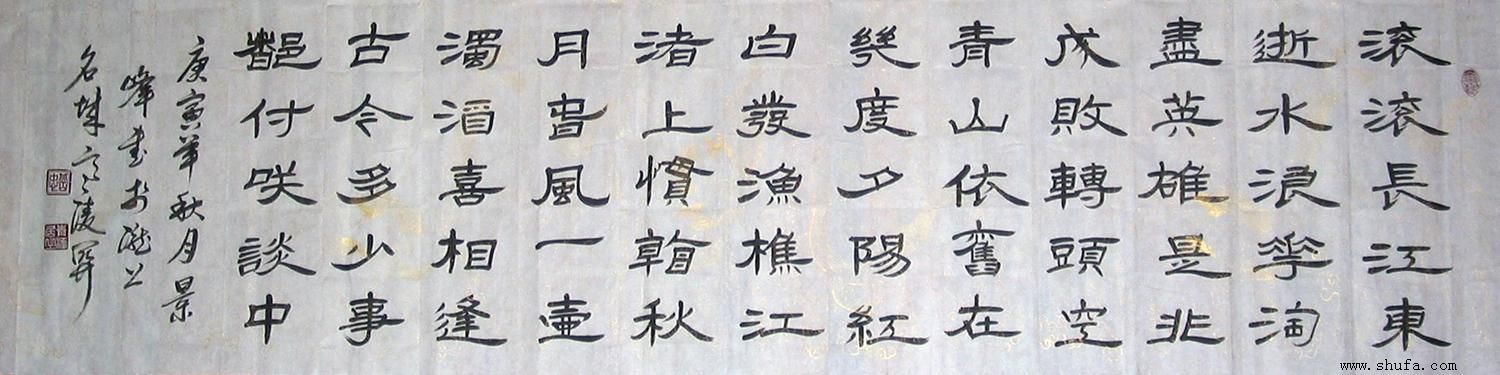 滚滚長江東
逝水浪花淘
盡英雄是非
成敗轉頭空
青山依舊在
幾度夕陽紅
白發漁樵江
渚上慣看秋
月春風一壺
濁酒喜相逢
古今多少事
都付咲談中
庚寅年秋月景
峰書於上
名城
www.shufa.com